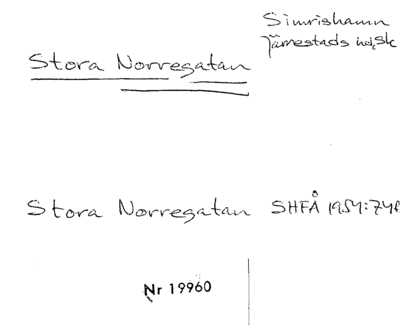 Simrishamn
Järrestads hd, Sk
Stora Norregatan
Stora Norregatan SHFÅ 1954:
Nr 19960